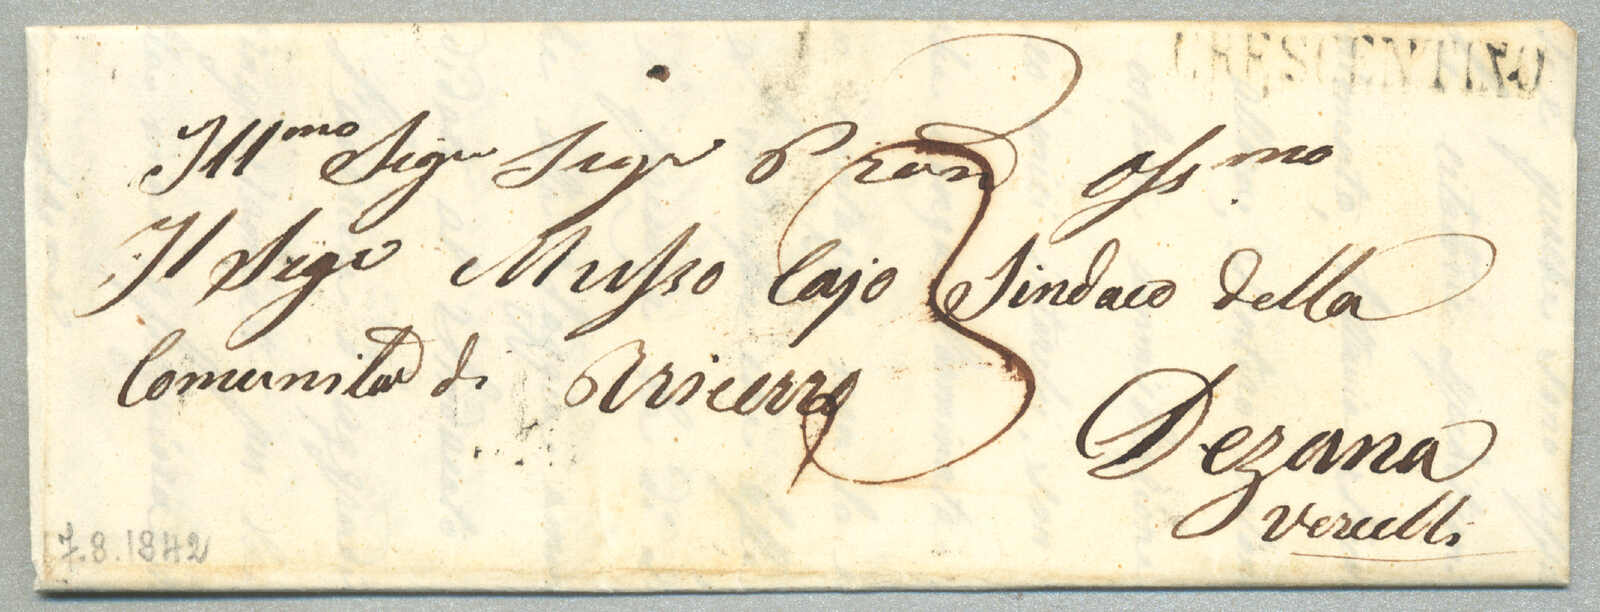 CRESCENTINO
Ill.mo Sigr Sigr Pron Oss.mo
Il Sigr Musso Cajo Sindaco della
Comunità di
Dezana
Vercelli
3
7.8.1842